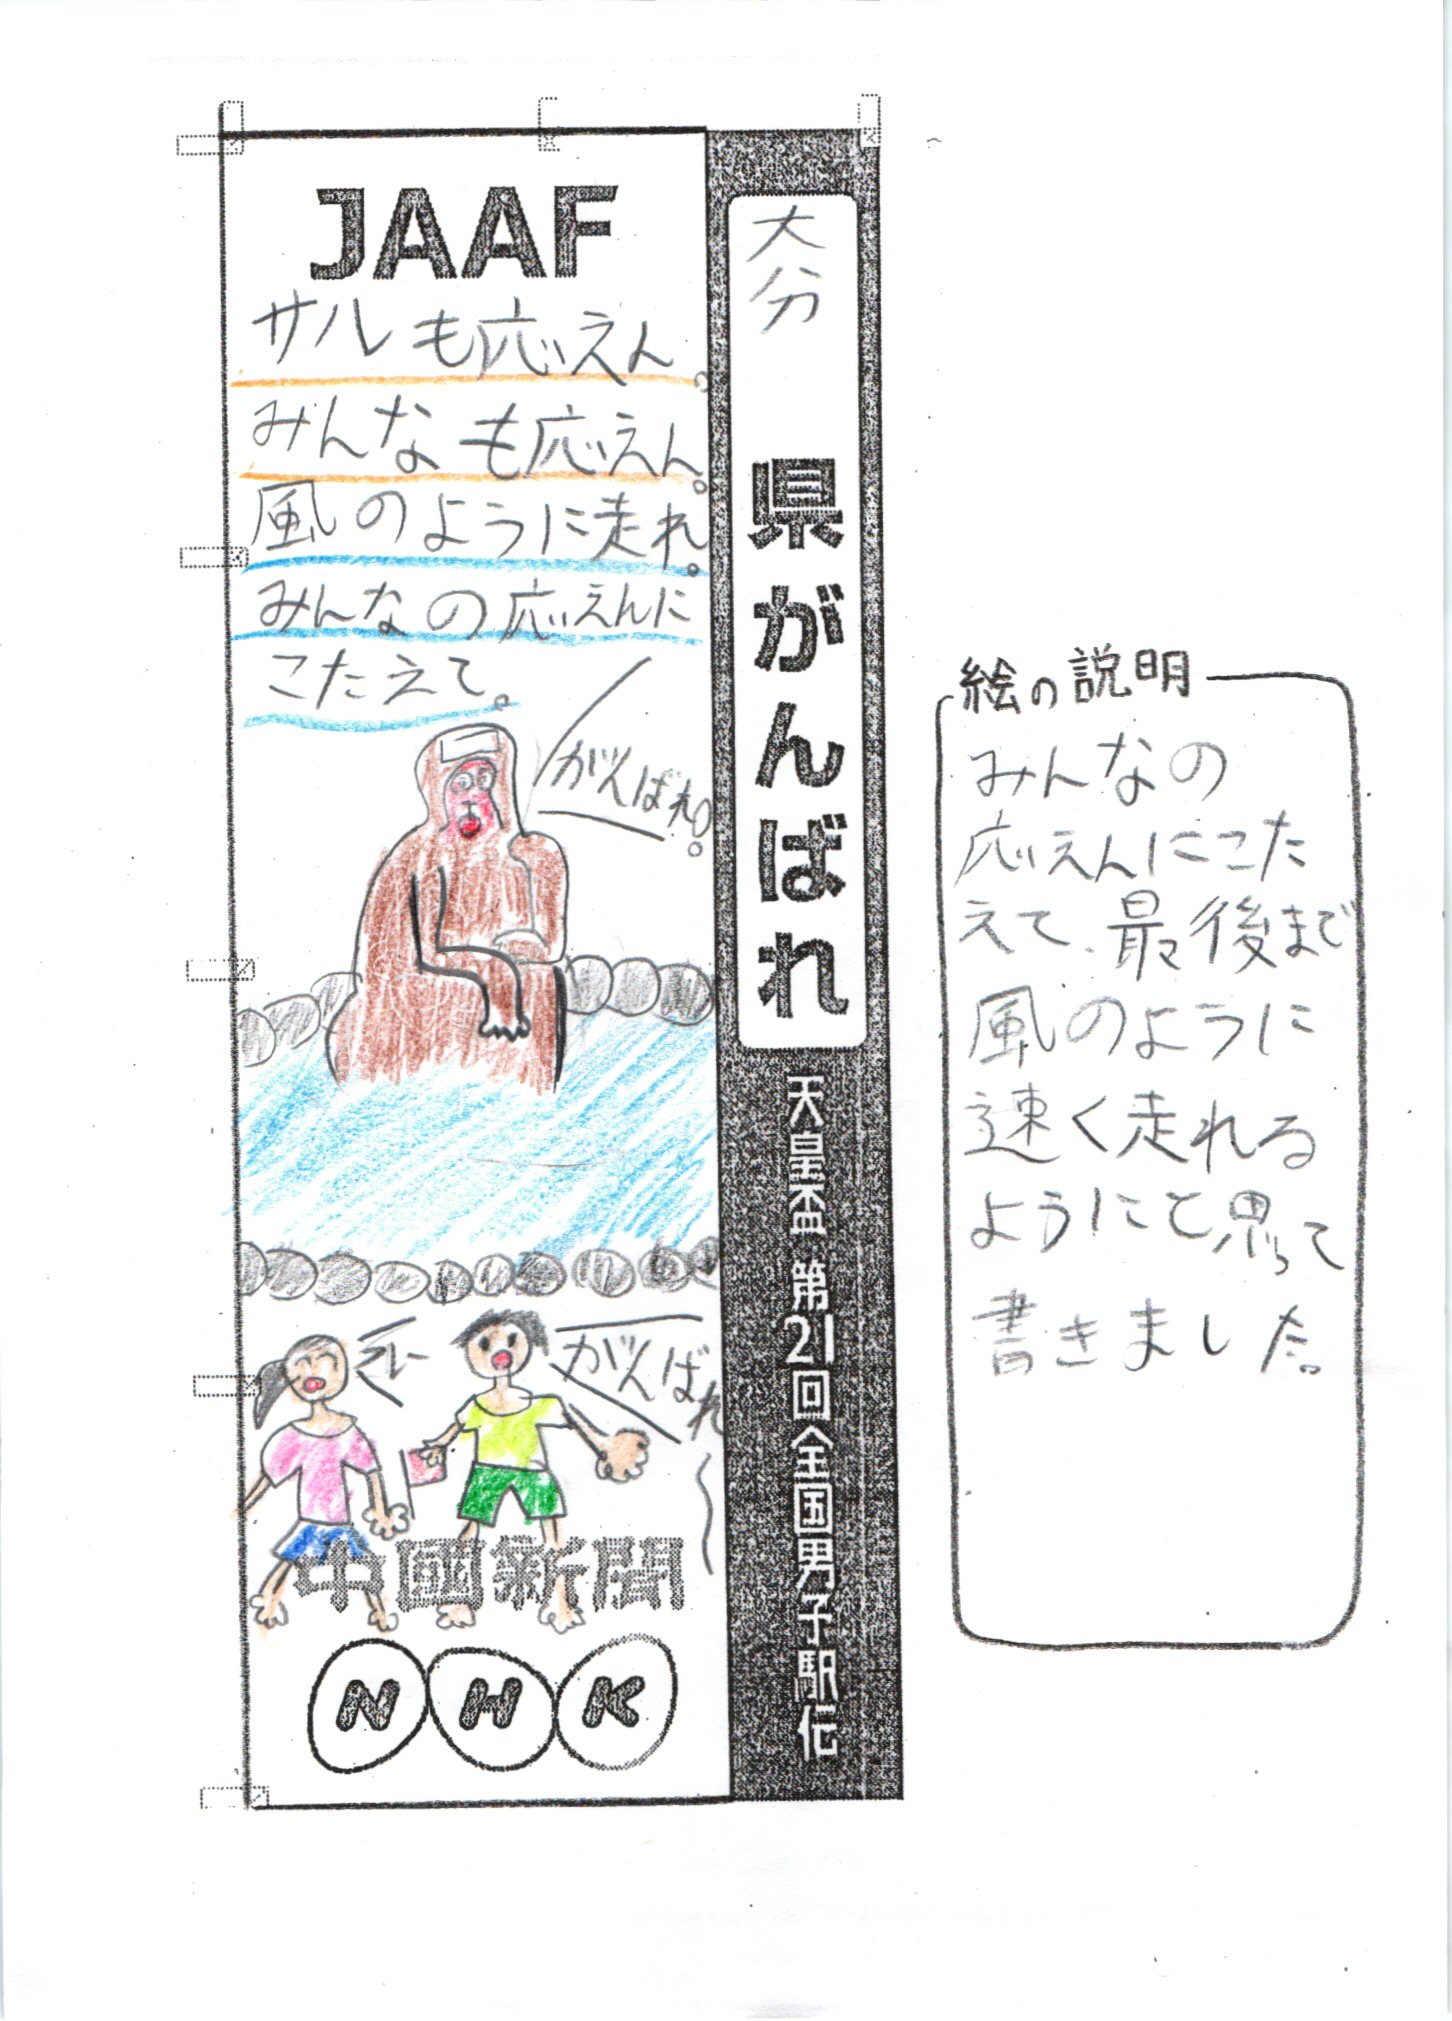 JAAF
サルも応えん。
みんなも応えん。
風のように走れ。
みんなの応えんに
こたえて。
がんばれ。
がんばれ
中國新聞
NHK
大分
県がんばれ
天皇盃 第21回全国男子駅伝
絵の説明
みんなの
応えんにこた
えて、最後まで
風のように
速く走れる
ようにと思って
書きました。